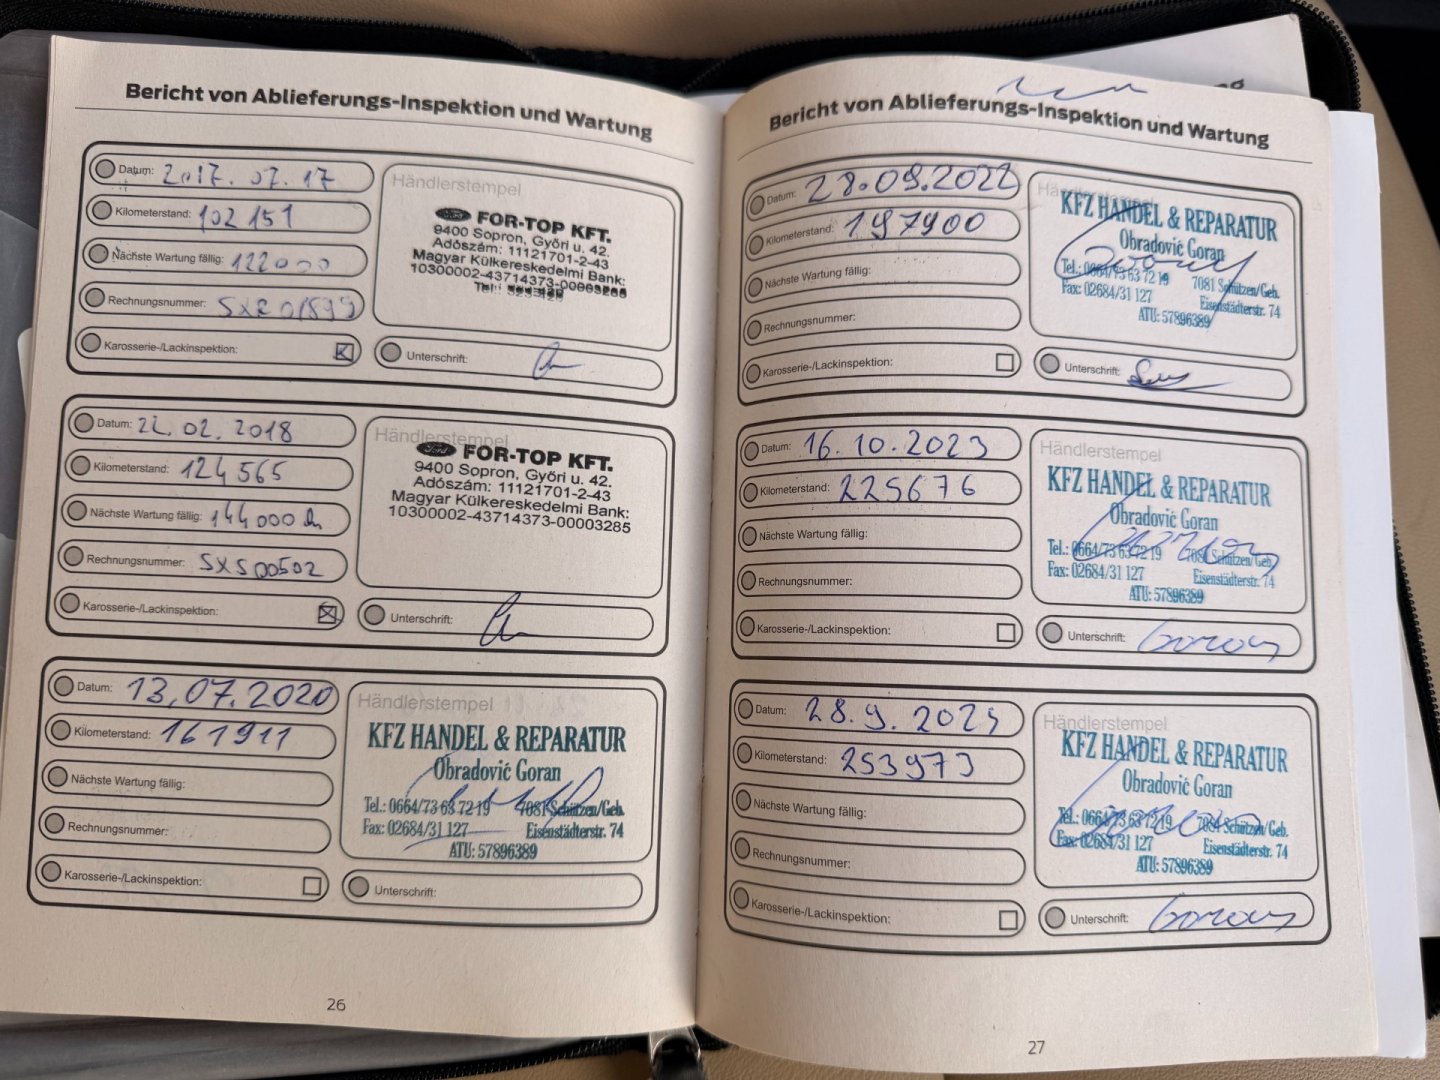 Bericht von Ablieferungs-Inspektion und Wartung
Datum: 2017. 07. 17
Kilometerstand: 102 151
Nächste Wartung fällig: 122000
Rechnungsnummer:
Karosserie-/Lackinspektion:
Händlerstempel
Ford FOR-TOP KFT.
9400 Sopron, Győri u. 42.
Adószám: 11121701-2-43
Magyar Külkereskedelmi Bank:
10300002-43714373-00003285
Tel.:
Unterschrift:
Datum: 22. 02. 2018
Kilometerstand: 124 565
Nächste Wartung fällig: 144000
Rechnungsnummer: SXS00502
Karosserie-/Lackinspektion:
Händlerstempel
Ford FOR-TOP KFT.
9400 Sopron, Győri u. 42.
Adószám: 11121701-2-43
Magyar Külkereskedelmi Bank:
10300002-43714373-00003285
Unterschrift:
Datum: 13.07.2020
Kilometerstand: 161911
Nächste Wartung fällig:
Rechnungsnummer:
Karosserie-/Lackinspektion:
Händlerstempel
KFZ HANDEL & REPARATUR
Obradović Goran
Tel.: 0664/73 63 72 19 7081 Schützen/Geb.
Fax: 02684/31 127 Eisenstädterstr. 74
ATU: 57896389
Unterschrift:
26
Bericht von Ablieferungs-Inspektion und Wartung
Datum: 28.09.2022
Kilometerstand: 197900
Nächste Wartung fällig:
Rechnungsnummer:
Karosserie-/Lackinspektion:
KFZ HANDEL & REPARATUR
Obradović Goran
Tel.: 0664/73 63 72 19 7081 Schützen/Geb.
Fax: 02684/31 127 Eisenstädterstr. 74
ATU: 57896389
Unterschrift:
Datum: 16.10.2023
Kilometerstand: 225676
Nächste Wartung fällig:
Rechnungsnummer:
Karosserie-/Lackinspektion:
Händlerstempel
KFZ HANDEL & REPARATUR
Obradović Goran
Tel.: 0664/73 63 72 19 7081 Schützen/Geb.
Fax: 02684/31 127 Eisenstädterstr. 74
ATU: 57896389
Unterschrift: Goran
Datum: 28.9.
Kilometerstand: 253973
Nächste Wartung fällig:
Rechnungsnummer:
Karosserie-/Lackinspektion:
Händlerstempel
KFZ HANDEL & REPARATUR
Obradović Goran
Tel.: 0664/73 63 72 19 7081 Schützen/Geb.
Fax: 02684/31 127 Eisenstädterstr. 74
ATU: 57896389
Unterschrift: Goran
27